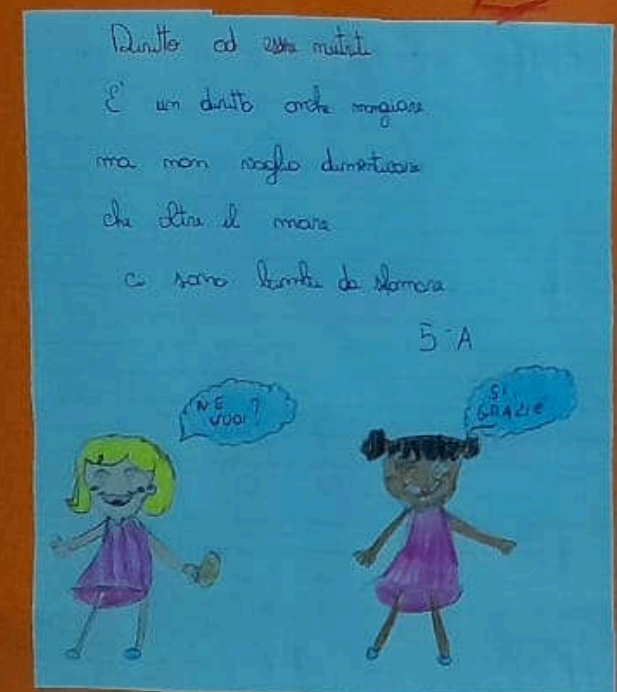 Diritto ad essere nutriti
E' un diritto anche mangiare
ma non voglio dimenticare
che oltre il mare
ci sono bambini da sfamare
5^A
NE VUOI?
SI GRAZIE